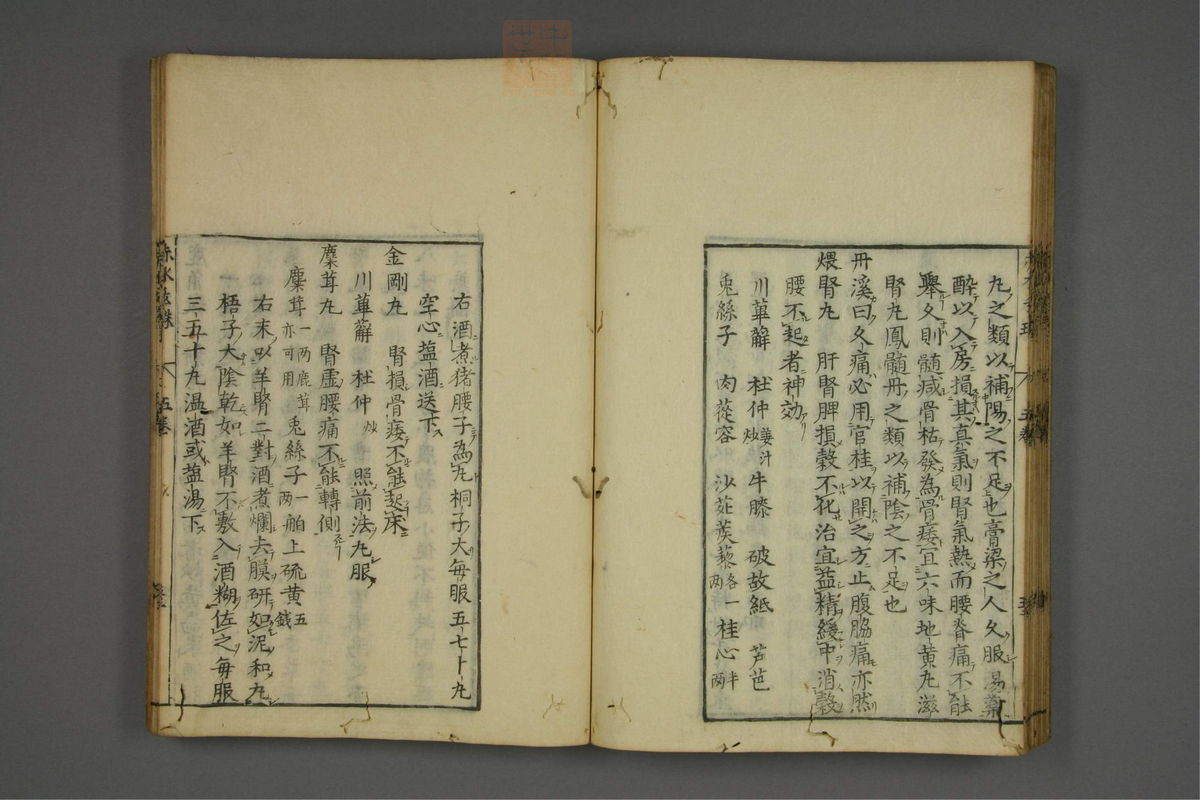 丸之類以補陽之不足也膏粱之人久服湯藥
醉以入房損其真氣則腎氣熱而腰脊痛不能
舉久則髓减骨枯發為骨痿宜六味地黄丸滋
腎丸鳳髓丹之類以補陰之不足也
丹溪曰久痛必用官桂以開之方止腹脇痛亦然
煨腎丸 肝腎脾損穀不化治宜益精緩中消穀
腰不起者神効
川萆薢 杜仲姜汁炒 牛膝 破故紙 芦芭
兎絲子 肉蓯容 沙苑蒺藜各一兩 桂心半兩
右酒煮猪腰子為丸桐子大每服五七十丸
空心盐酒送下
金剛丸 腎損骨痿不能起床
川萆薢 杜仲炒 照前法丸服
麋茸丸 腎虛腰痛不能轉側
麋茸一兩鹿茸亦可用 兎絲子一兩 舶上硫黄五錢
右末以羊腎二對酒煮爛去膜研如泥和丸
梧子大陰乾如羊腎不敷入酒糊佐之每服
三五十丸温酒或盐湯下
赤水玄珠 五卷